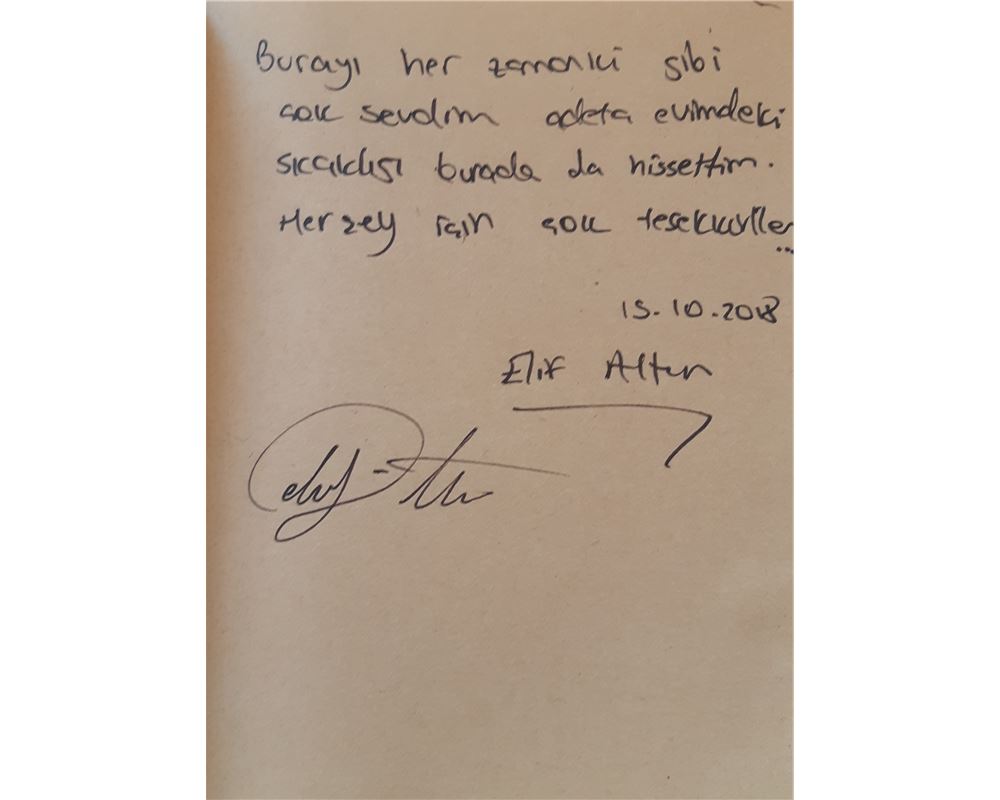 Burayı her zamanki gibi
çok sevdim adeta evimdeki
sıcaklığı burada da hissettim.
Herşey için çok teşekkürler
...
15.10.2018
Elif Altun